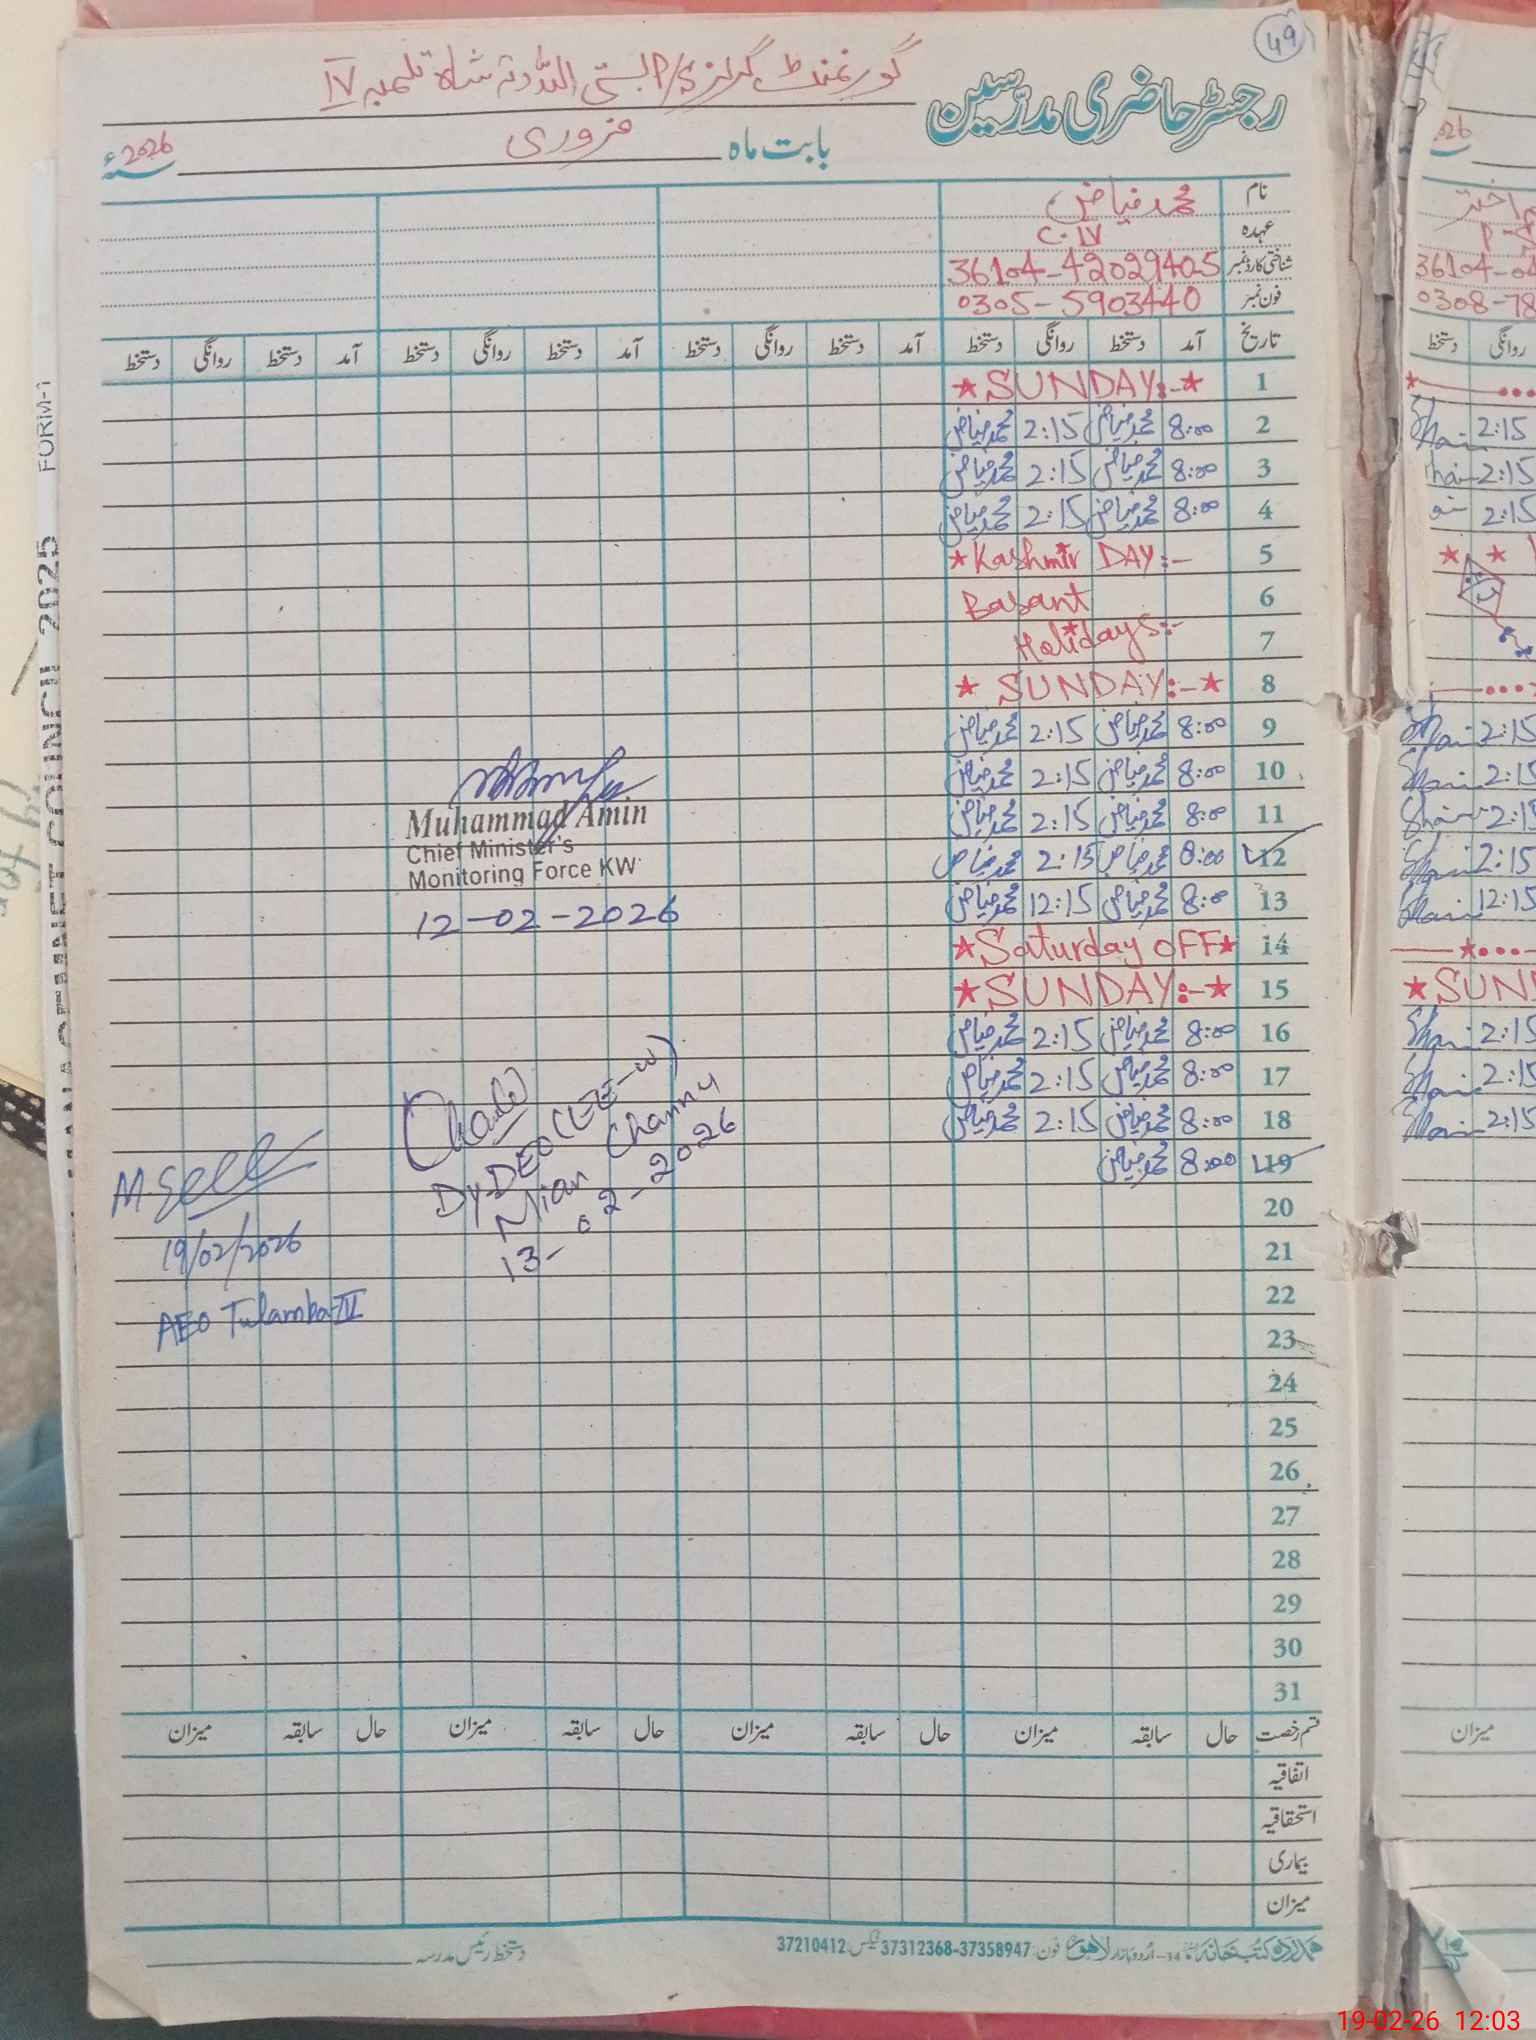 49
رجسٹر حاضری مدرسین
گورنمنٹ گرلز P/S بستی اللہ دتہ شاہ تلمبہ IV
بابت ماہ فروری 2026ء
نام محمد فیاض
عہدہ C-IV
شناختی کارڈ نمبر 36104-42029405
فون نمبر 0305-5903440
تاریخ آمد دستخط روانگی دستخط آمد دستخط روانگی دستخط آمد دستخط روانگی دستخط آمد دستخط روانگی دستخط
1 ★ SUNDAY:-★
2 8:00 محمد فیاض 2:15 محمد فیاض
3 8:00 محمد فیاض 2:15 محمد فیاض
4 8:00 محمد فیاض 2:15 محمد فیاض
5 ★ Kashmir DAY:-
6 Basant
7 Holidays:-
8 ★ SUNDAY:-★
9 8:00 محمد فیاض 2:15 محمد فیاض
10 8:00 محمد فیاض 2:15 محمد فیاض
11 8:00 محمد فیاض 2:15 محمد فیاض
12 8:00 محمد فیاض 2:15 محمد فیاض
13 8:00 محمد فیاض 12:15 محمد فیاض
14 ★ Saturday OFF★
15 ★ SUNDAY:-★
16 8:00 محمد فیاض 2:15 محمد فیاض
17 8:00 محمد فیاض 2:15 محمد فیاض
18 8:00 محمد فیاض 2:15 محمد فیاض
19 8:00 محمد فیاض
20
21
22
23
24
25
26
27
28
29
30
31
Muhammad Amin
Chief Minister's
Monitoring Force KW
12-02-2026
Dy.DEO (EE-W)
Mian Channu
13-02-2026
19/02/2026
AEO Tulamba-IV
قسم رخصت حال سابقہ میزان حال سابقہ میزان حال سابقہ میزان حال سابقہ میزان
اتفاقیہ
استحقاقیہ
بیماری
میزان
ہمدرد کتب خانہ 14-اردو بازار لاہور فون: 37358947-37312368 فیکس: 37210412
دستخط رئیس مدرسہ
FORM-1
COUNCIL 2025
36104-04
0308-78
روانگی دستخط
2:15
2:15
2:15
2:15
2:15
2:15
2:15
12:15
★SUN
2:15
2:15
2:15
میزان
19-02-26 12:03